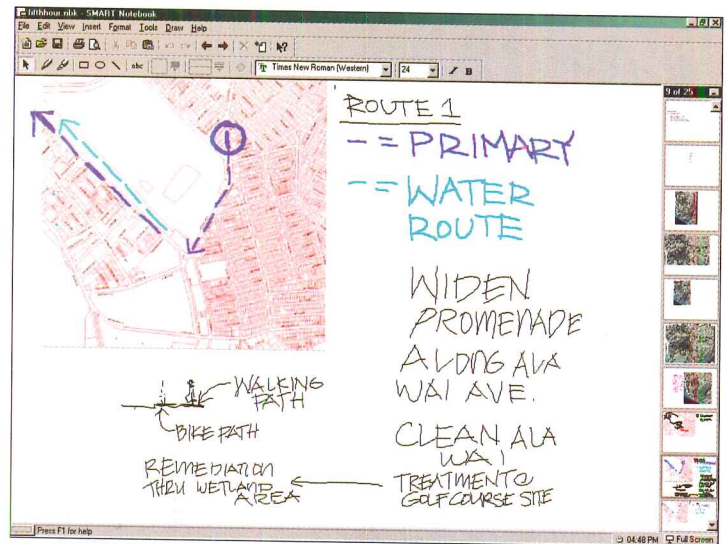 fifthhour.nbk - SMART Notebook
File Edit View Insert Format Tools Draw Help
abc Times New Roman (Western) 24 I B
9 of 25
1
ROUTE 1
- = PRIMARY
- = WATER
ROUTE
WIDEN
PROMENADE
ALONG ALA
WAI AVE.
WALKING
PATH
BIKE PATH
CLEAN ALA
WAI
TREATMENT @
GOLF COURSE SITE
REMEDIATION
THRU WETLAND
AREA
Press F1 for help
04:48 PM Full Screen